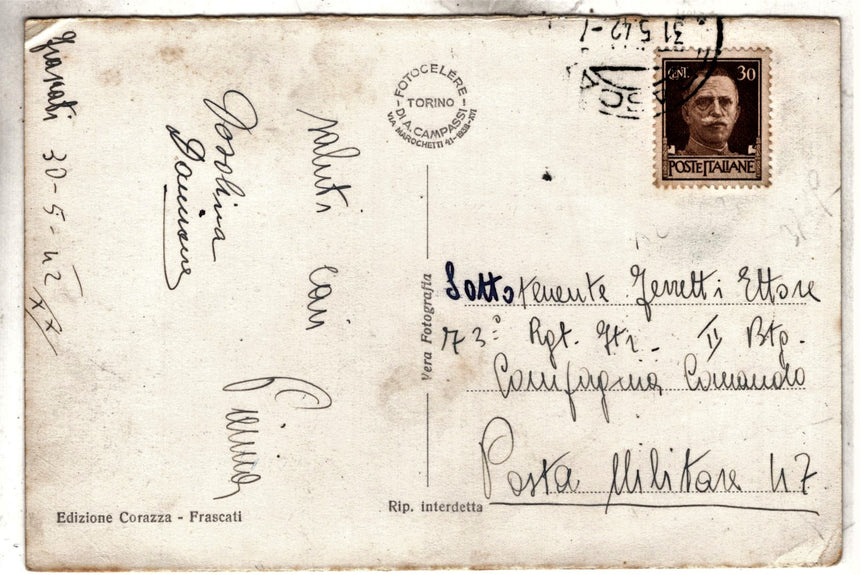 Frascati 30-5-42
XX
Saluti cari
Pierina
Rosolina
Damiane
FOTOCELERE
TORINO
DI A. CAMPASSI
VIA MAROCHETTI 41-1938-XVI
31.5.42-
CENT. 30
POSTE ITALIANE
Vera Fotografia
Sottotenente Ferretti Ettore
73º Rgt. Ftr. II Btg.
Compagnia Comando
Posta Militare 47
Edizione Corazza - Frascati
Rip. interdetta